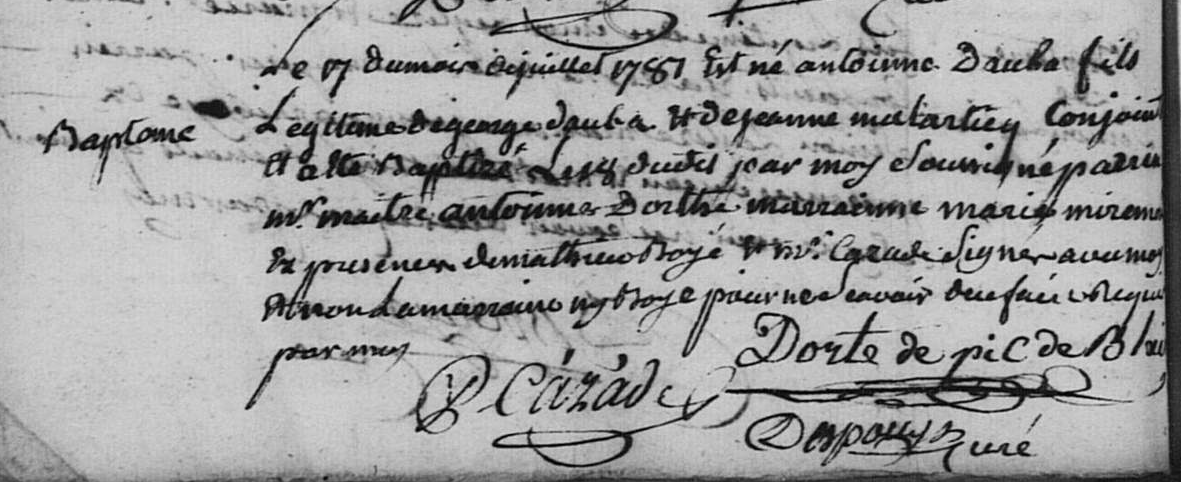 Le 17 du mois de juillet 1781 Est né antoinne Dauba fils
Baptome
Legitime de george dauba & de jeanne malartieu Conjoint
Et a ete Baptisé Le 18 dudit par moy Soussigné parrin
mr. maitre antoinne Dorthe marrainne marie
En presence de mathieu Boyé & mr. Cazade Signés avec moy
Et non La marraine ny Boyé pour ne Scavoir de ce faire Requis
par moy
Dorte de pic de
P Cázáde
Despouys Curé